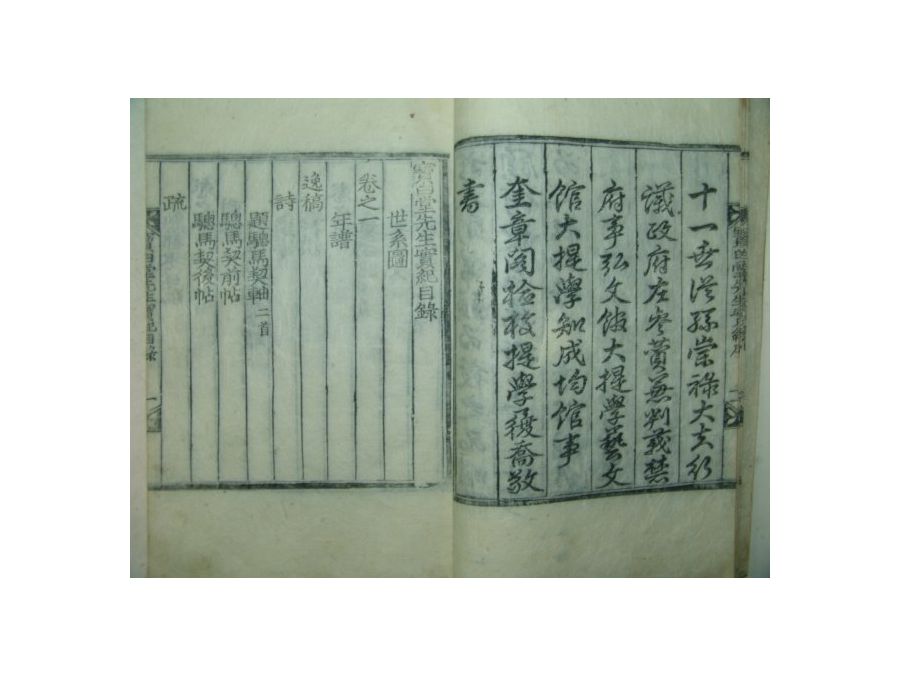 十一世從孫崇祿大夫行
議政府左參贊兼判義禁
府事弘文館大提學藝文
館大提學知成均館事
奎章閣檢校提學履喬敬
書
寶白堂先生實紀目錄
世系圖
卷之一
年譜
逸稿
詩
題驄馬契軸二首
驄馬契前帖
驄馬契後帖
疏
寶白堂先生實紀目錄 一